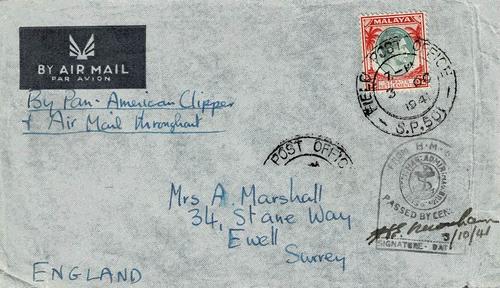 BY AIR MAIL
PAR AVION
By Pan-American Clipper
& Air Mail throughout
MALAYA
FIELD POST OFFICE
1941
S.P.501
POST OFFIC
H.M.
PASSED BY CEN
3/10/41
SIGNATURE - DATE
Mrs A. Marshall
34, Stane Way
Ewell
Surrey
ENGLAND